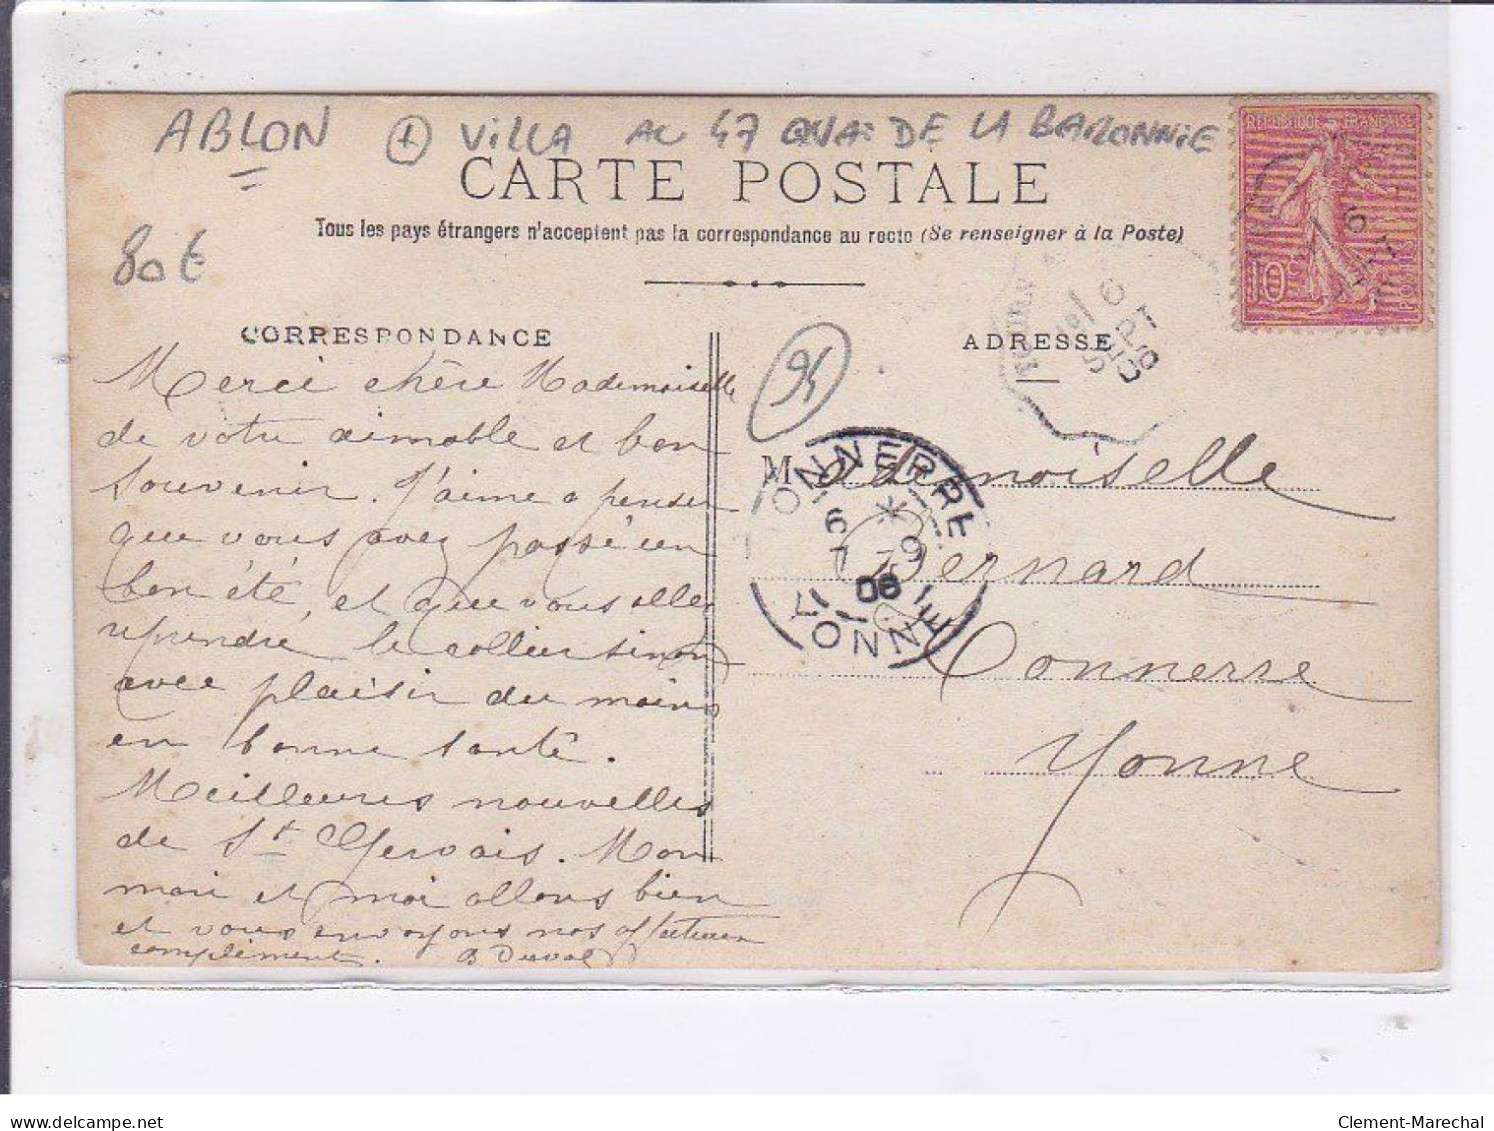 ABLON + VILLA AU 47 QUAI DE LA BARONNIE
CARTE POSTALE
Tous les pays étrangers n'acceptent pas la correspondance au recto (Se renseigner à la Poste)
80€
94
REPUBLIQUE FRANÇAISE
10c
POSTES
6
SEPT
08
CORRESPONDANCE
Merci chère Mademoiselle
de votre aimable et bon
souvenir. J'aime a penser
que vous avez passé un
bon été, et que vous allez
reprendre le collier sinon
avec plaisir du moins
en bonne santé.
Meilleures nouvelles
de St Gervais. Mon
mari et moi allons bien
et vous envoyons nos affectueux
compliments. B Duval
ADRESSE
Mademoiselle
Bernard
Tonnerre
Yonne
TONNERRE
6 * 9
7
08
YONNE
delcampe.net
Clement-Marechal